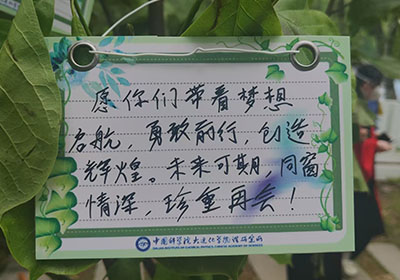 愿你们带着梦想
启航，勇敢前行，创造
辉煌。未来可期，同窗
情深，珍重再会！
中国科学院大连化学物理研究所
DALIAN INSTITUTE OF CHEMICAL PHYSICS, CHINESE ACADEMY OF SCIENCES